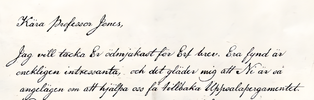 Kära Professor Jones,
Jag vill tacka Er ödmjukast för Ert brev. Era fynd är
onekligen intressanta, och det gläder mig att Ni är så
angelägen om att hjälpa oss få tillbaka Uppsalapergamentet.